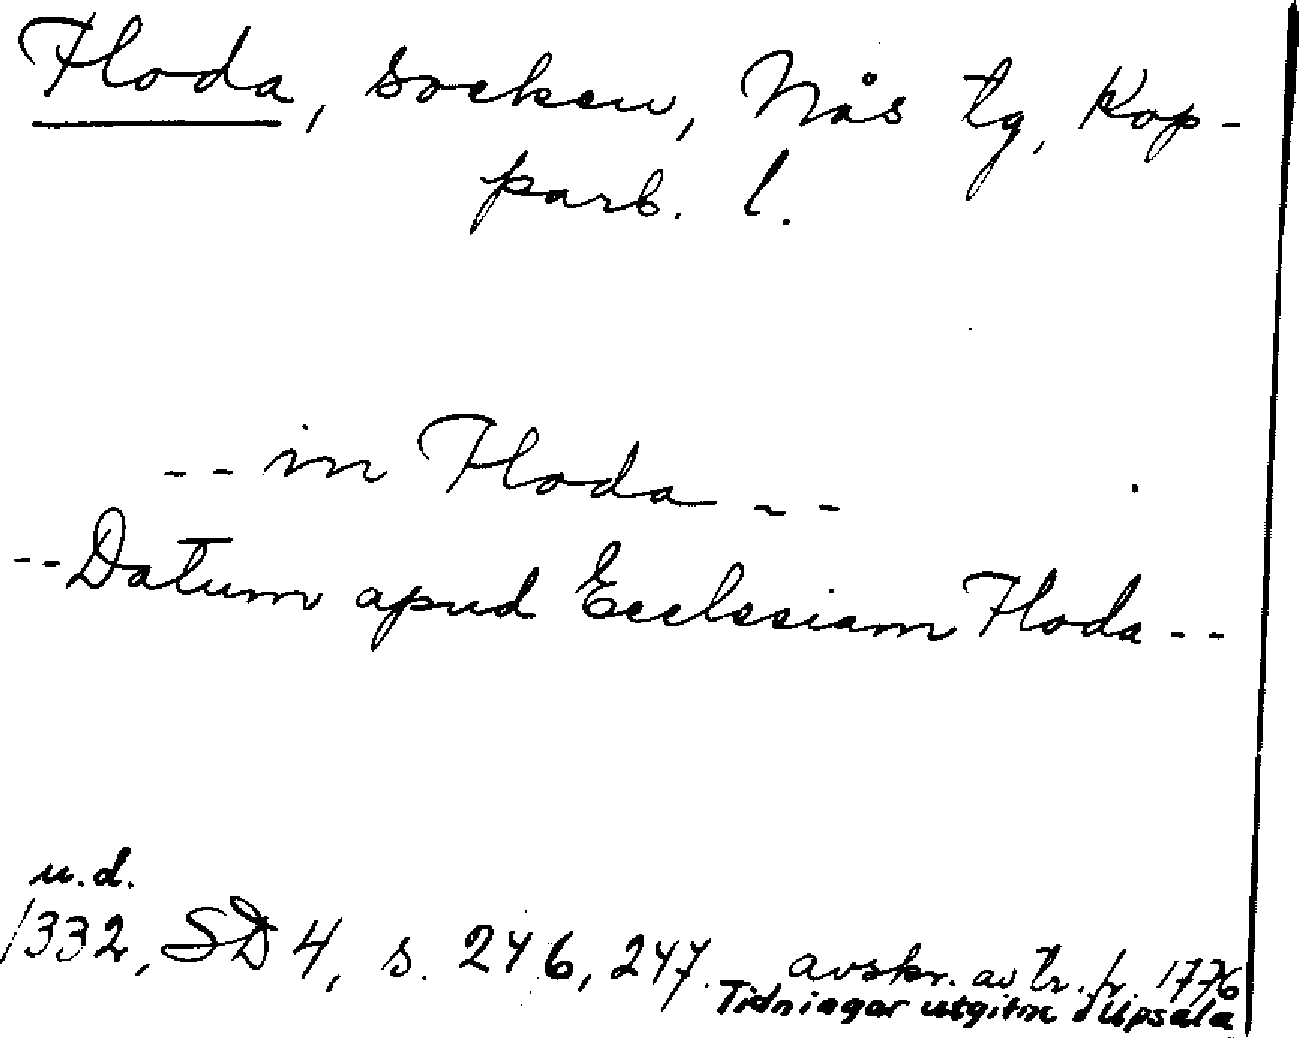 Floda, socken, Nås tg, Kop-
parb. l.
-- in Floda --
-- Datum apud Ecclesiam Floda --
u.d.
1332, SD 4, s. 246, 247. avskr. av tr. fr. 1776
Tidningar utgitne i Upsala